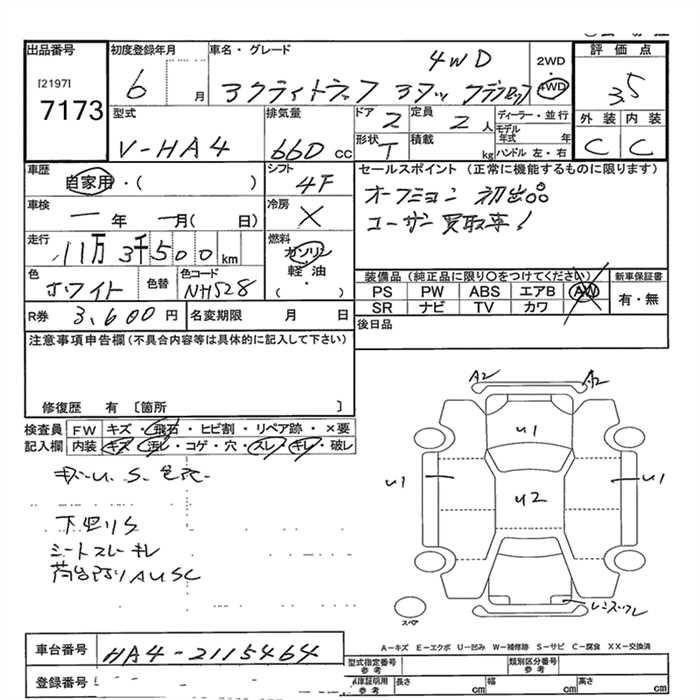 出品番号 初度登録年月 車名・グレード 4WD 2WD 評価点
[2197]
7173 6 月 アクティトラック アタック 4WD 3.5
型式 排気量 ドア 定員 ディーラー・並行 外装 内装
V-HA4 660 cc 2 2 人 モデル年式 年 C C
形状 T 積載 kg ハンドル 左・右
車歴 シフト セールスポイント(正常に機能するものに限ります)
自家用・( ) 4F オークション 初出品
車検 冷房 ユーザー買取車!
一 年 一 月( 日) ×
走行 燃料
11万 3千500 km ガソリン
色 色替 色コード 軽・油 装備品(純正品に限り○をつけてください) 新車保証書
ホワイト NH528 ( ) PS PW ABS エアB AW 有・無
R券 3,600 円 名変期限 月 日 SR ナビ TV カワ
注意事項申告欄(不具合内容等は具体的に記入して下さい) 後日品
修復歴 有 〔箇所 〕
検査員 FW キズ・飛石・ヒビ割・リペア跡・×要
記入欄 内装 キズ・汚レ・コゲ・穴・スレ・キレ・破レ
A2 A2
U1
U1 U2 U1
下回りS
シートスレ キレ
スペア
車台番号 HA4-2115464
登録番号
A-キズ E-エクボ U-凹み W-補修跡 S-サビ C-腐食 XX-交換済
型式指定番号 参考 類別区分番号 参考
車庫証明用 参考 長さ cm 幅 cm 高さ cm